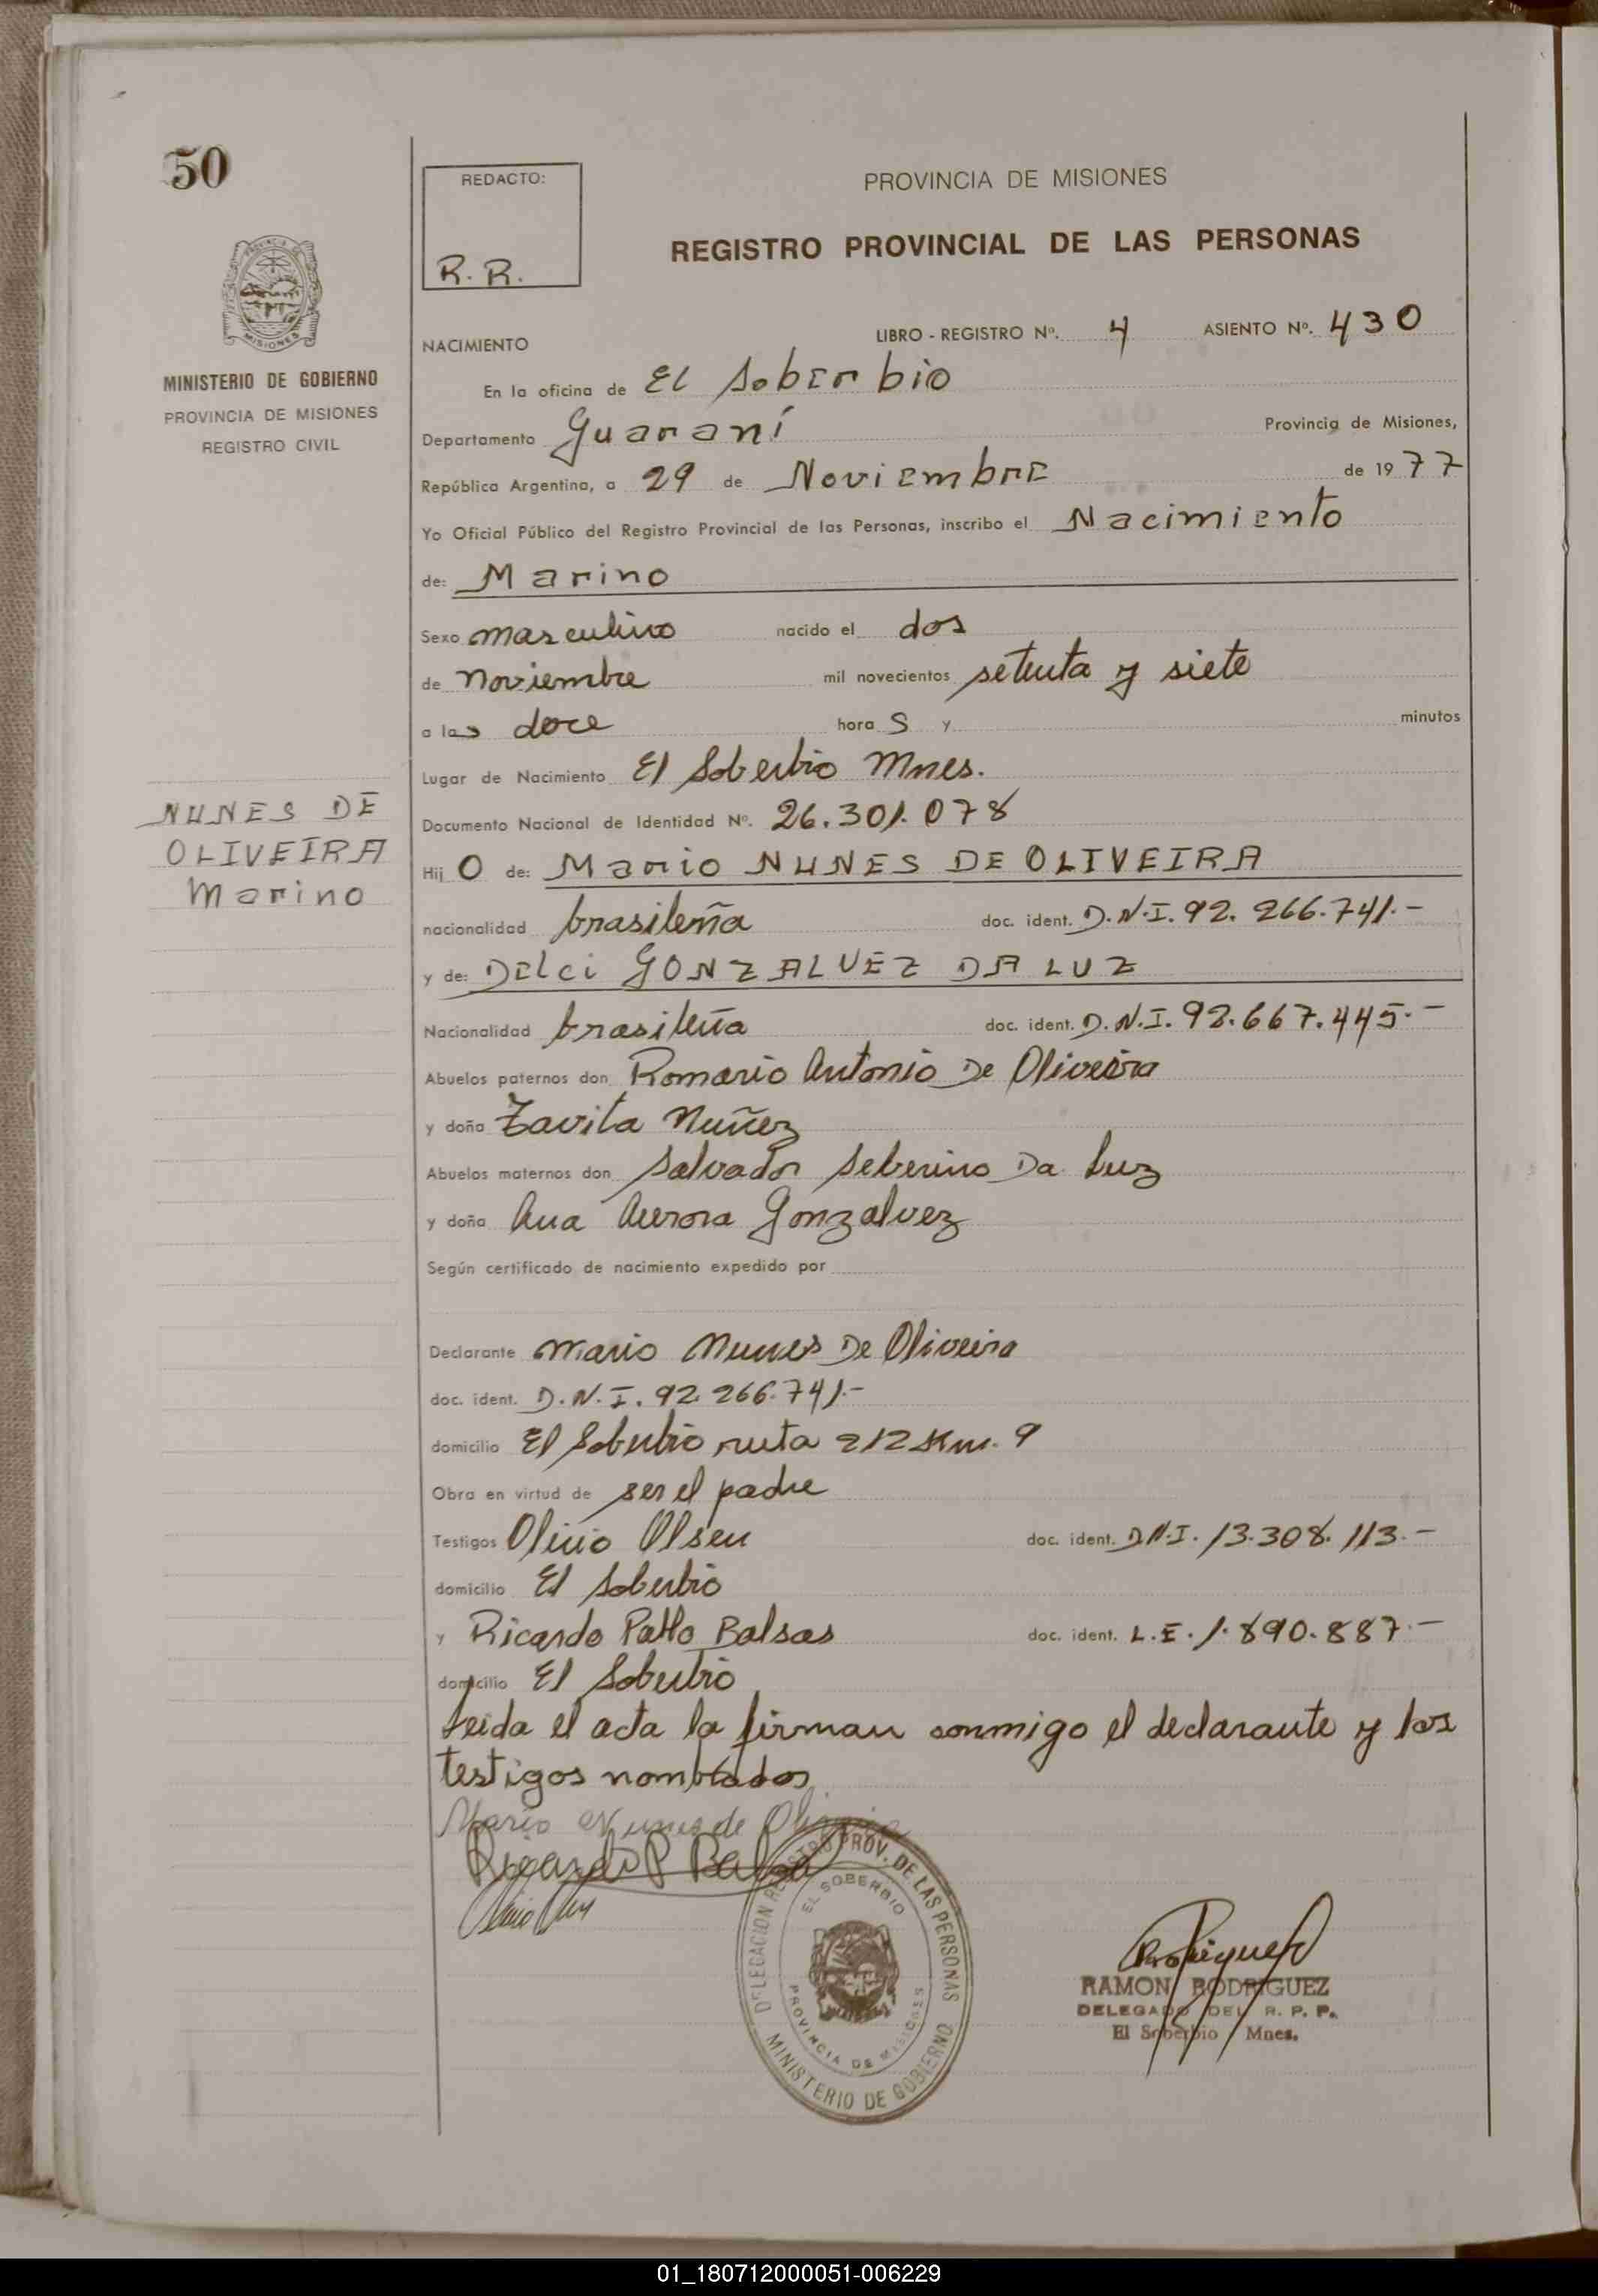 50
MINISTERIO DE GOBIERNO
PROVINCIA DE MISIONES
REGISTRO CIVIL
NUNES DE
OLIVEIRA
Marino
REDACTO:
R. R.
PROVINCIA DE MISIONES
REGISTRO PROVINCIAL DE LAS PERSONAS
NACIMIENTO LIBRO - REGISTRO Nº. 4 ASIENTO Nº. 430
En la oficina de El Soberbio
Departamento Guaraní Provincia de Misiones,
República Argentina, a 29 de Noviembre de 1977
Yo Oficial Público del Registro Provincial de las Personas, inscribo el Nacimiento
de: Marino
Sexo masculino nacido el dos
de noviembre mil novecientos setenta y siete
a las doce horas y minutos
Lugar de Nacimiento El Soberbio Mnes.
Documento Nacional de Identidad Nº. 26.301.078
Hijo de: Mario NUNES DE OLIVEIRA
nacionalidad brasileña doc. ident. D.N.I. 92.266.741.-
y de: Delci GONZALVEZ DA LUZ
Nacionalidad brasileña doc. ident. D.N.I. 92.667.445.-
Abuelos paternos don Romario Antonio De Oliveira
y doña Zavita Nuñez
Abuelos maternos don Salvador Seberino Da Luz
y doña Ana Aurora Gonzalvez
Según certificado de nacimiento expedido por
Declarante Mario Nunes De Oliveira
doc. ident. D.N.I. 92.266.741.-
domicilio El Soberbio ruta 212 Km. 9
Obra en virtud de ser el padre
Testigos Olinio Olsen doc. ident. D.N.I. 13.308.113.-
domicilio El Soberbio
y Ricardo Balsas doc. ident. L.E. 1.890.887.-
domicilio El Soberbio
Leida el acta la firman conmigo el declarante y los
testigos nombrados
Mario Nunes de Oliveira
Ricardo P Balsa
DELEGACION REGISTRO PROV. DE LAS PERSONAS
EL SOBERBIO
PROVINCIA DE MISIONES
MINISTERIO DE GOBIERNO
Rodriguez
RAMON RODRIGUEZ
DELEGADO DEL R. P. P.
El Soberbio Mnes.
01_180712000051-006229